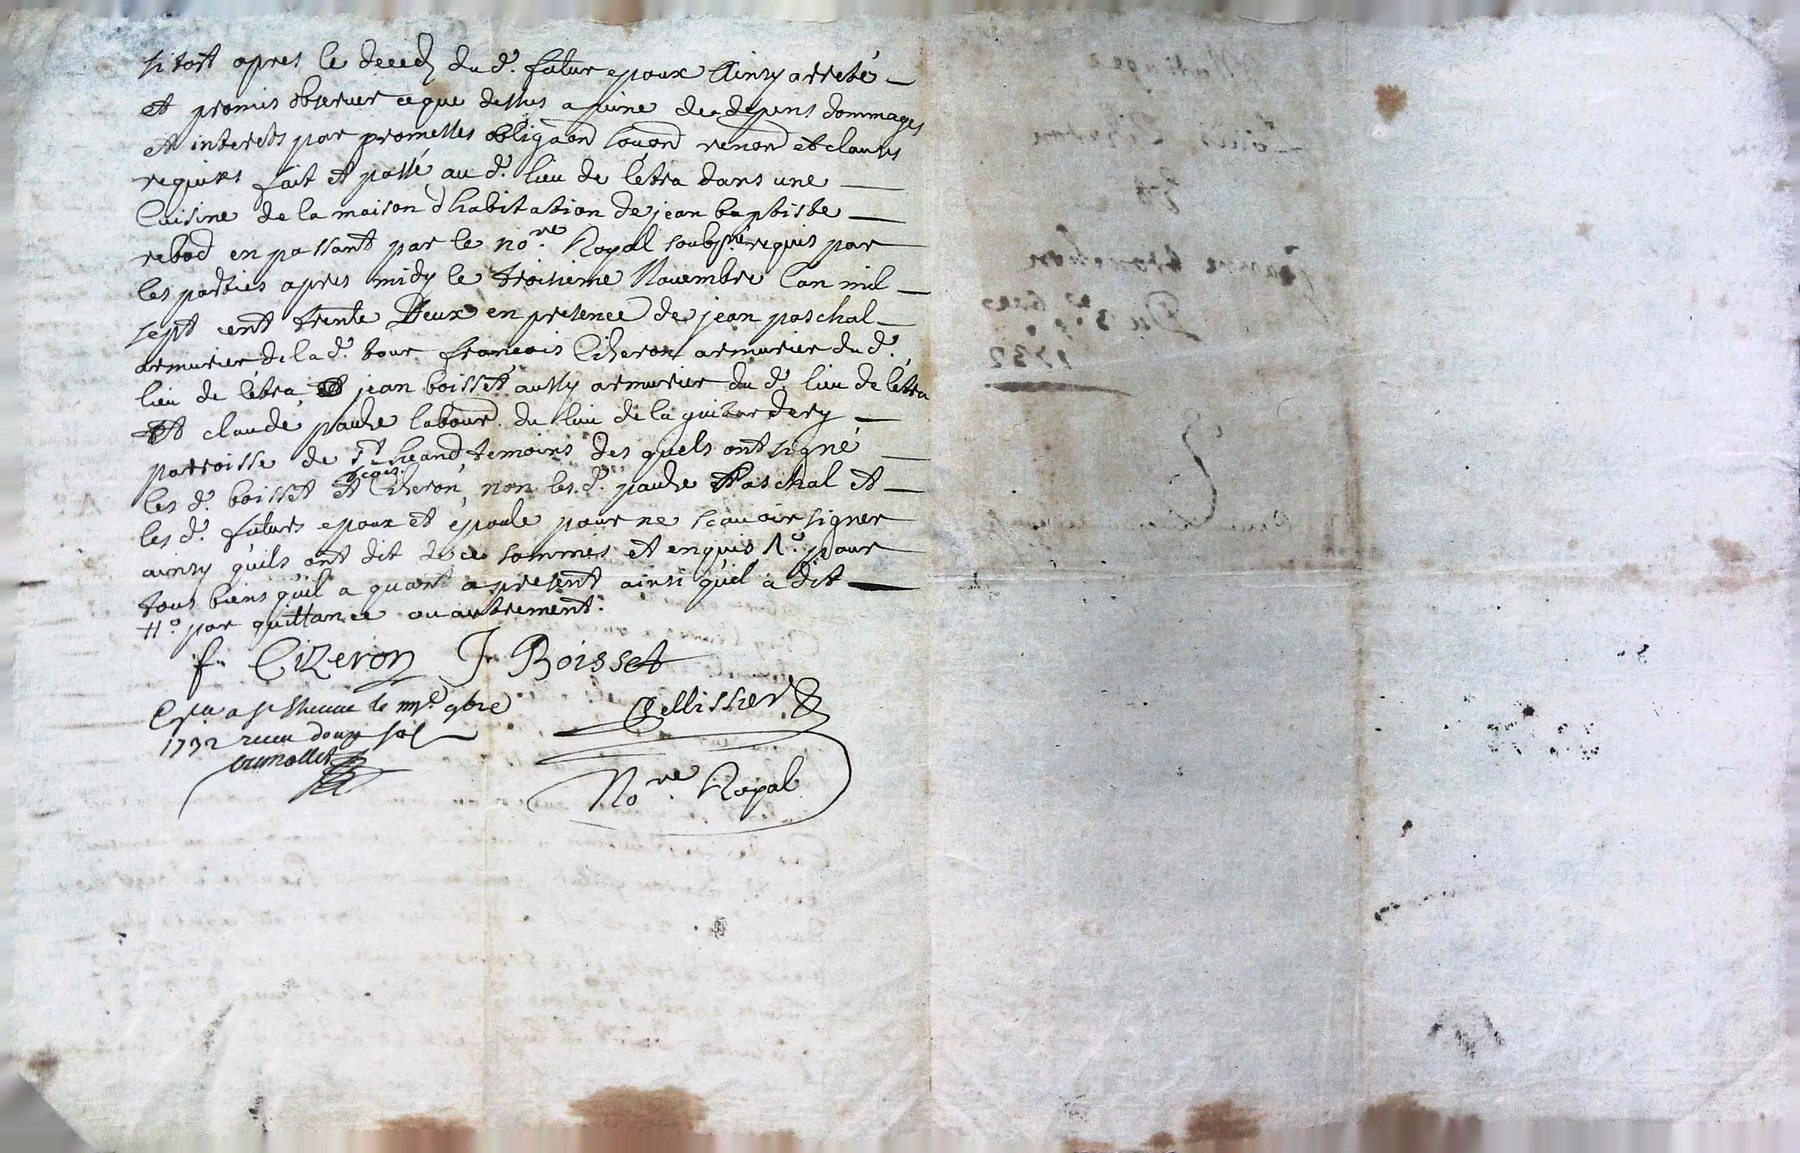 si tost apres le deced du d. futur epoux Ainsy arreté
et promis observer ce que dessus a peine de depens dommages
et interets par promesses obligaond souond renond et clauses
requises fait et passé au d. lieu de létra dans une
Cuisine de la maison d'habitation de jean baptiste
rebod en passant par le nore. Royal soubsné requis par
les parties apres midy le troisieme Novembre lan mil
sept cent trente Deux en presence de jean paschal
armurier de la d. tour francois Cizeron armurier du d.
lieu de létra et jean boisset aussy armurier du d. lieu de létra
et claude paule labour. du lieu de la guizardery
parroisse de st. heand temoins des quels ont signé
les d. boisset et Cizeron, non les d. paule Paschal et
les d. futurs epoux et epouse pour ne scauoir signer
ainsy quils ont dit de ce sommés et enquis 1o pour
tous biens quil a quant a present ainsi quil a dit
11o par quittance ou autrement.
f. Cizeron J. Boisset
a st. le 9bre
Pellissier
1732 receu douze sol
Nore. Royal
1732